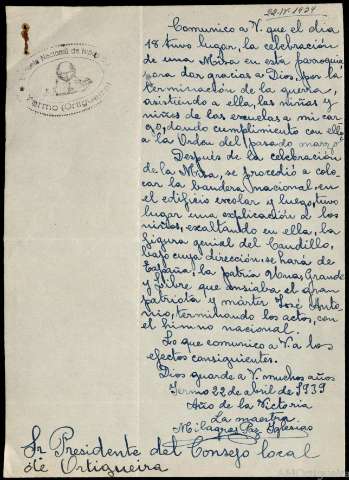 22-IV-1939
Escuela Nacional de
Yermo (Ortigueira)
Comunico a V. que el día
15 tuvo lugar, la celebración
de una Misa en esta parroquia
para dar gracias a Dios, por la
terminación de la guerra,
asistiendo a ella, las niñas y
niños de las escuelas a mi car
go, dando cumplimiento con ello
a la Orden del pasado marzo.
Después de la celebración
de la Misa, se procedió a colo-
car la bandera nacional, en
el edificio escolar y luego, tuvo
lugar una explicación a los
niños, exaltando en ella, la
figura genial del Caudillo,
bajo cuya dirección, se hará de
España, la patria Una, Grande
y Libre que ansiaba el gran
patriota y mártir José Anto-
nio, terminando los actos, con
el himno nacional.
Lo que comunico a V. a los
efectos consiguientes.
Dios guarde a V. muchos años
Yermo 22 de abril de 1939
Año de la Victoria
La maestra
Milagros Paz Iglesias
Sr Presidente del Consejo local
de Ortigueira